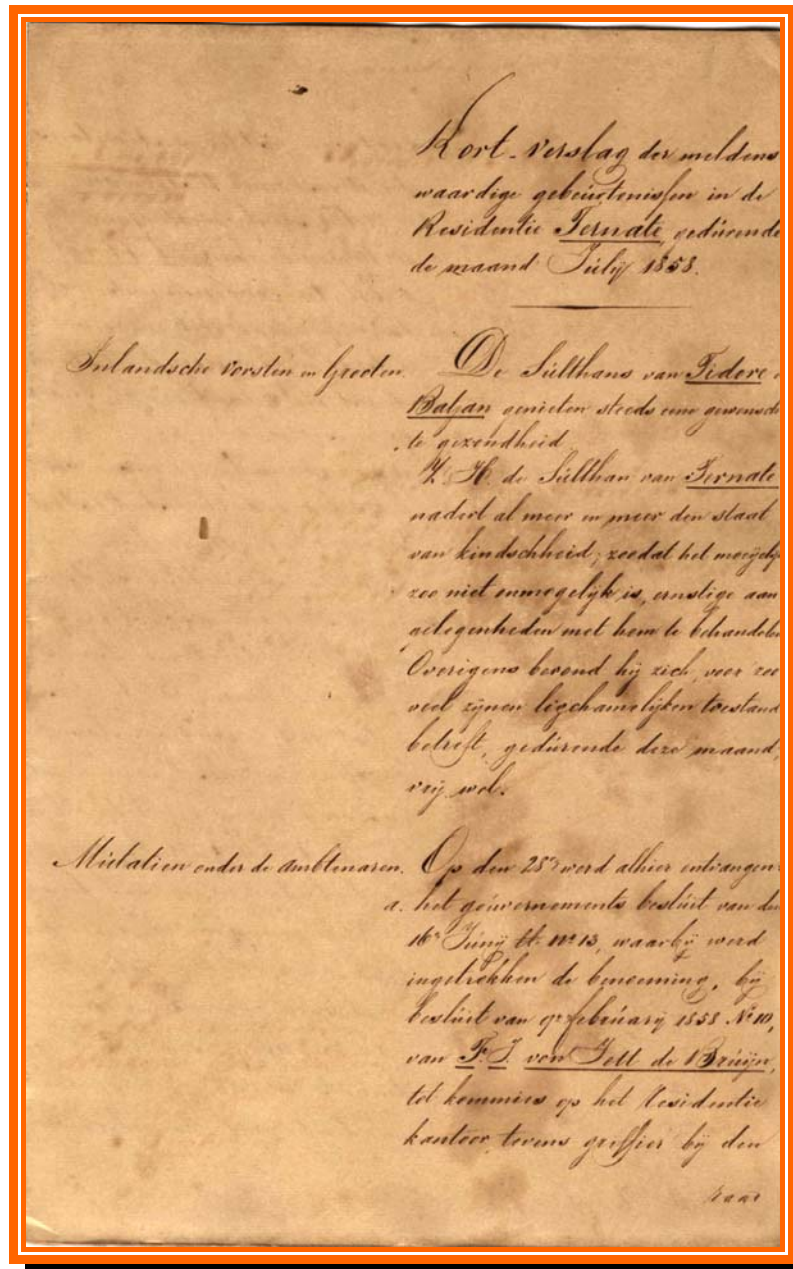 Kort-verslag der meldens
waardige gebeurtenissen in de
Residentie Ternate, gedurende
de maand Julij 1858.
Inlandsche vorsten en Grooten.
De Sulthans van Tidore
Batjan genieten steeds eene gewensch
te gezondheid.
Z. H. de Sulthan van Ternate
nadert al meer en meer den staat
van kindschheid; zoodat het moeijelijk
zoo niet onmogelijk is, ernstige aan
gelegenheden met hem te behandelen
Overigens bevond hij zich, voor zoo
veel zijnen ligchamelijken toestand
betreft, gedurende deze maand,
vrij wel.
Mutatien onder de Ambtenaren.
Op den 28n werd alhier ontvangen
a. het gouvernements besluit van den
16n Junij ll. No 13, waarbij werd
ingetrokken de benoeming, bij
besluit van 9n februarij 1858 No 10,
van F. J. von Jett de Bruijn,
tot kommies op het Residentie
kantoor, tevens griffier bij den
raad